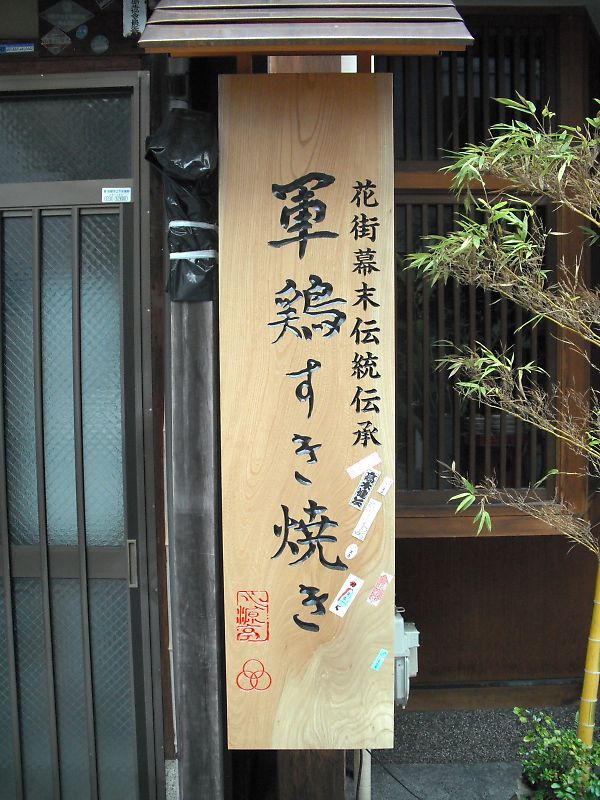 花街幕末伝統伝承
軍鶏すき焼き